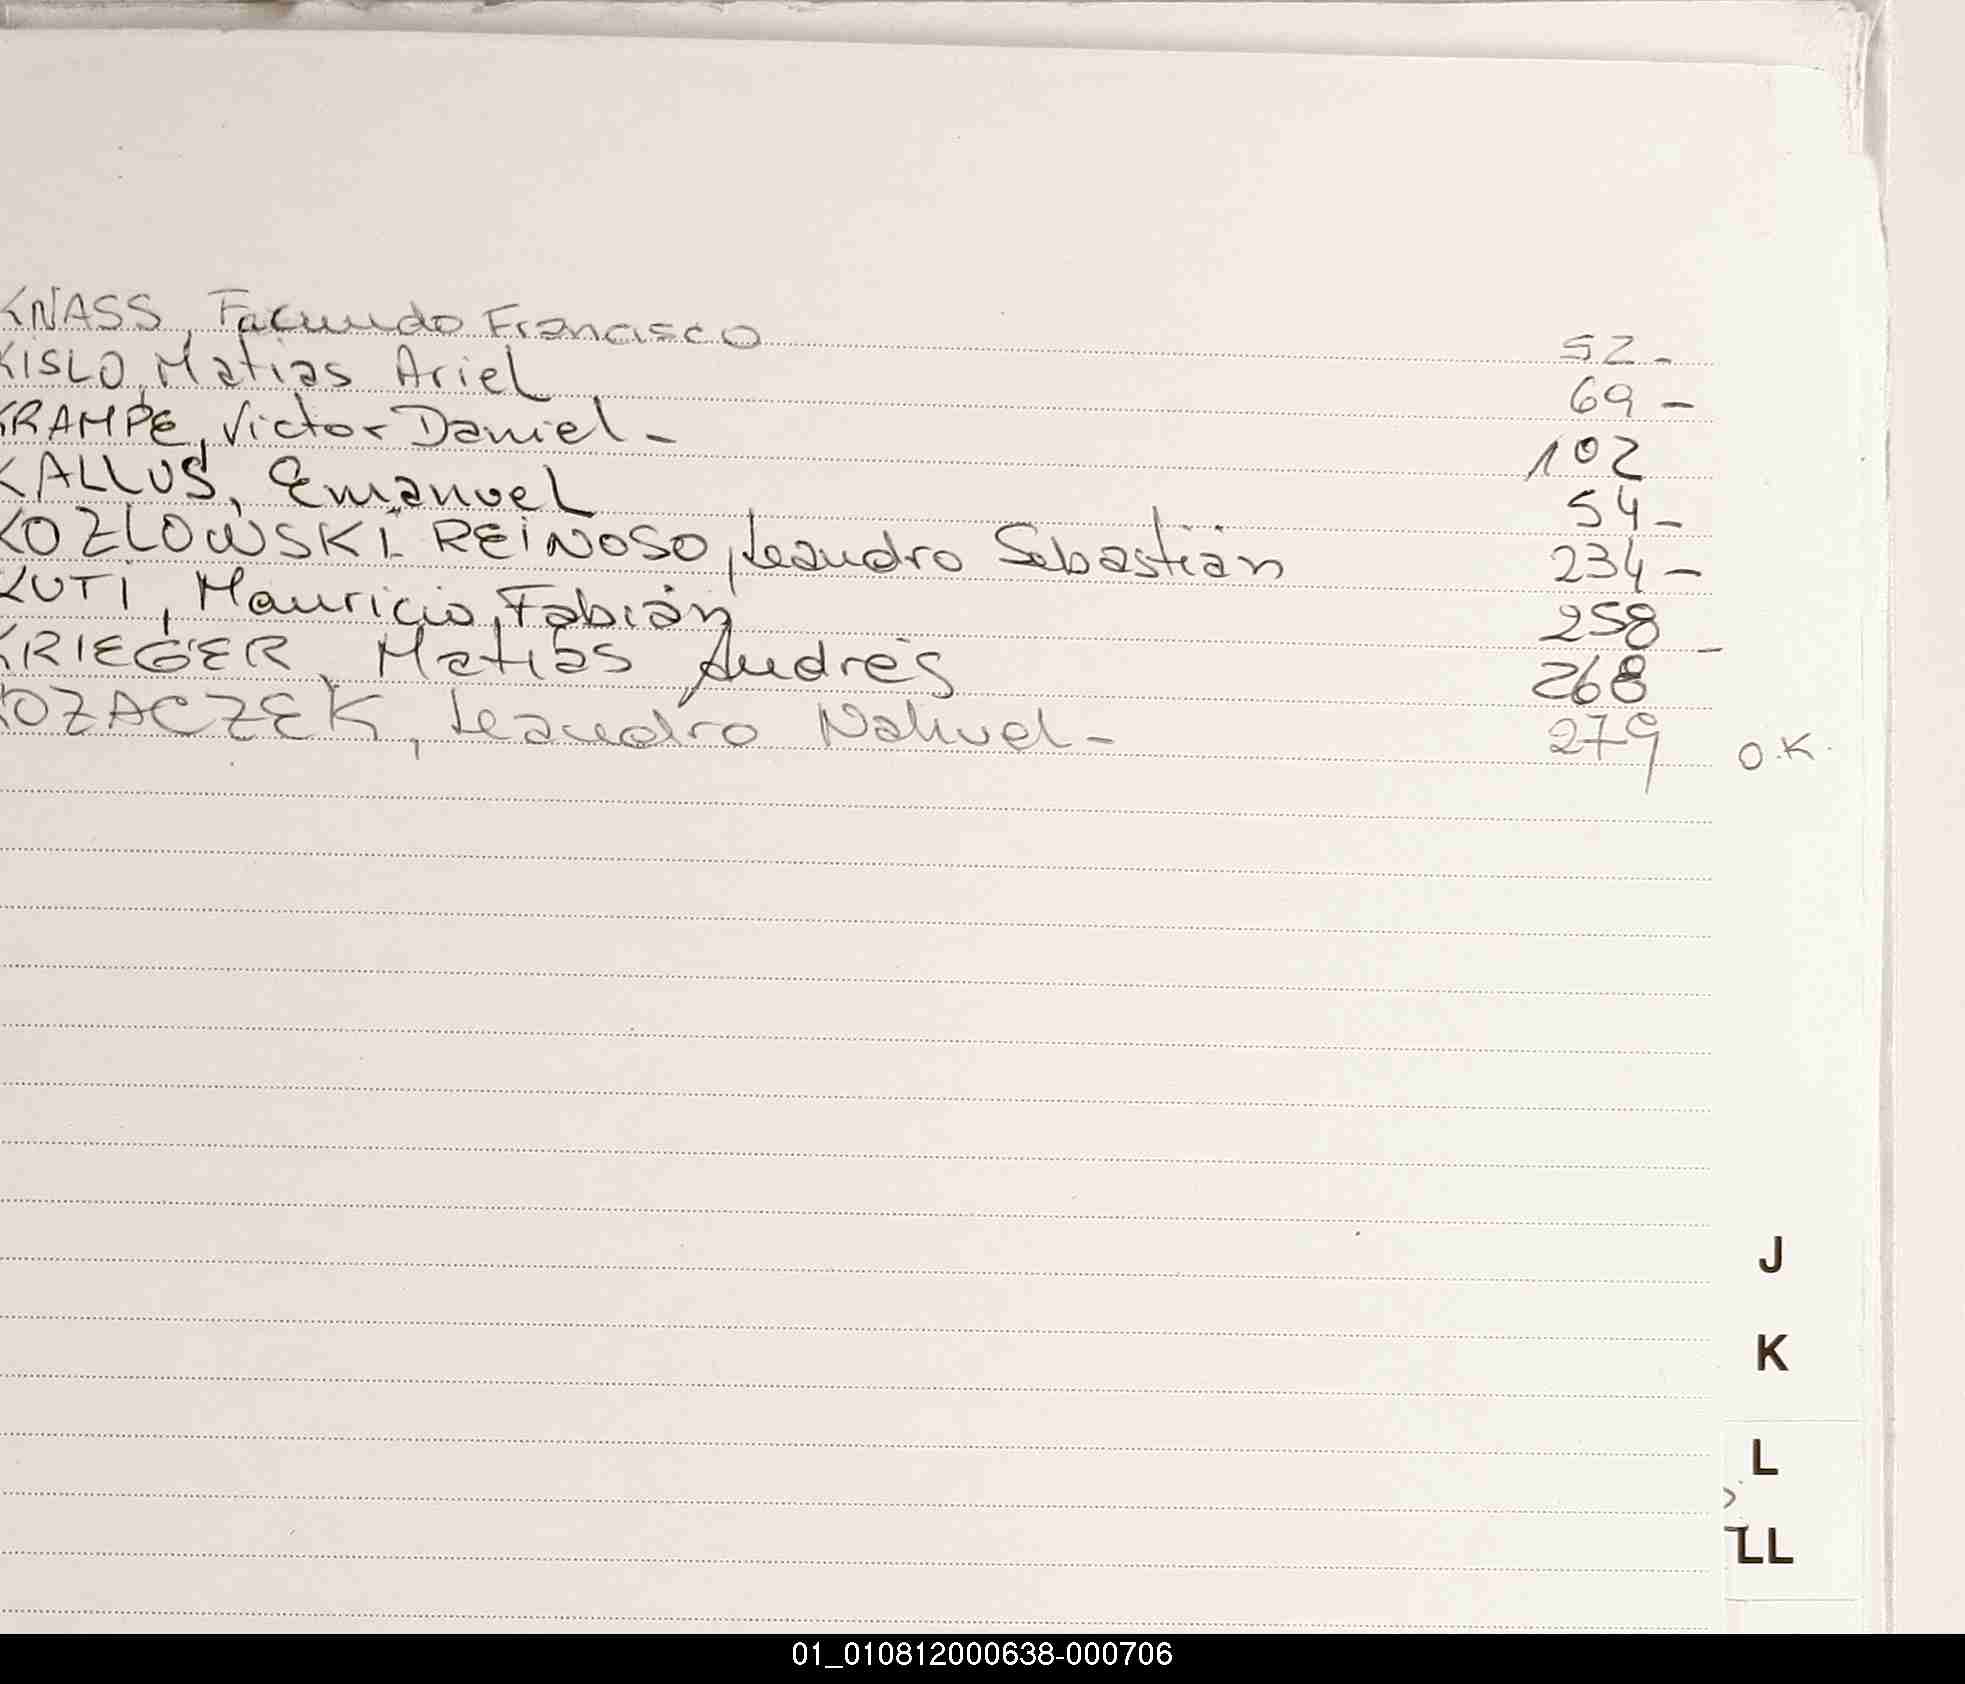 KNASS, Facundo Francisco 52-
KISLO, Matias Ariel 69-
KRAMPE, Victor Daniel- 102
KALLUS, Emanuel 54-
KOZLOWSKI REINOSO, Leandro Sebastián 234-
KUTI, Mauricio Fabián 258-
KRIEGER Matías Andrés 268
KOZACZEK, Leandro Nahuel- 279 O.K.
J
K
L
LL
01_010812000638-000706